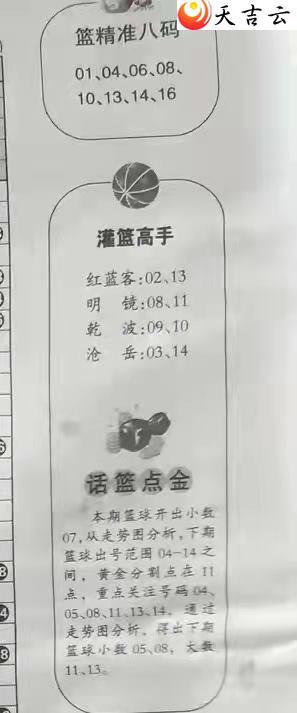 天吉云
篮精准八码
01、04、06、08、
10、13、14、16
灌篮高手
红蓝客:02、13
明 镜:08、11
乾 波:09、10
沧 岳:03、14
话篮点金
本期篮球开出小数
07,从走势图分析,下期
篮球出号范围04-14之
间，黄金分割点在11
点，重点关注号码04、
05、08、11、13、14，通过
走势图分析，得出下期
篮球小数05、08，大数
11、13。